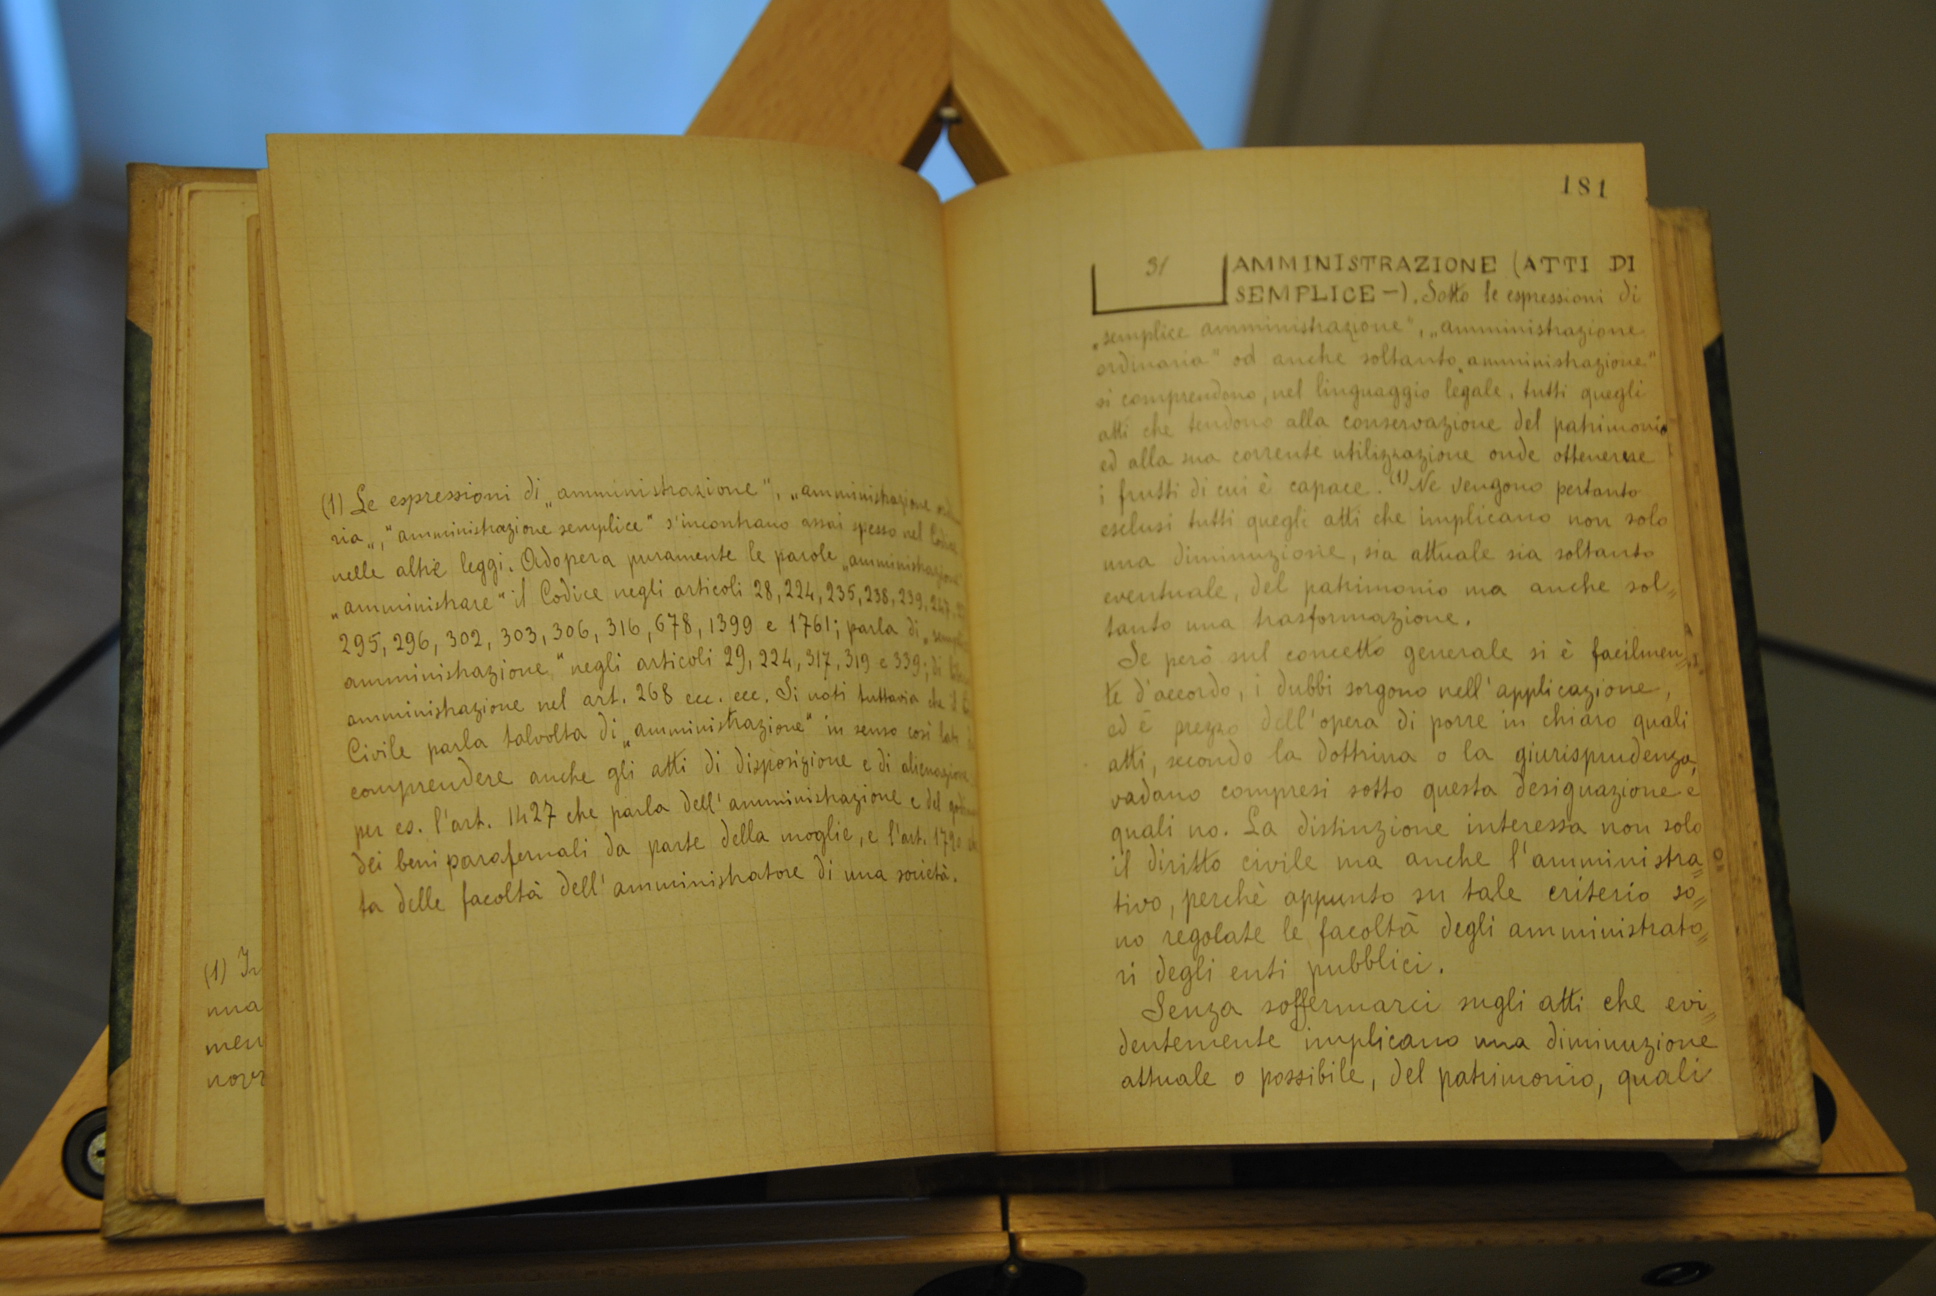 (1) Le espressioni di „amministrazione“, „amministrazione
ria„, “amministrazione semplice“ s'incontrano assai spesso nel Codice
nelle altre leggi. Adopera puramente le parole „amministrazione
„amministrare“ il Codice negli articoli 28, 224, 235, 238, 239, 247,
295, 296, 302, 303, 306, 316, 678, 1399 e 1761; parla di „
amministrazione“ negli articoli 29, 224, 317, 319 e 339; di
amministrazione nel art. 268 ecc. ecc. Si noti tuttavia che il
Civile parla talvolta di „amministrazione“ in senso così lato
comprendere anche gli atti di disposizione e di alienazione
per es. l'art. 1427 che parla dell'amministrazione e del
dei beni parafernali da parte della moglie, e l'art.
ta delle facoltà dell'amministratore di una società.
(1)
una
men
181
31
AMMINISTRAZIONE (ATTI DI
SEMPLICE –). Sotto le espressioni di
„semplice amministrazione“, „amministrazione
ordinaria“ od anche soltanto „amministrazione“
si comprendono, nel linguaggio legale, tutti quegli
atti che tendono alla conservazione del patrimonio
ed alla sua corrente utilizzazione onde ottenere
i frutti di cui è capace. (1) Ne vengono pertanto
esclusi tutti quegli atti che implicano non solo
una diminuzione, sia attuale sia soltanto
eventuale, del patrimonio ma anche sol=
tanto una trasformazione.
Se però sul concetto generale si è facilmen=
te d'accordo, i dubbi sorgono nell'applicazione,
ed è prezzo dell'opera di porre in chiaro quali
atti, secondo la dottrina o la giurisprudenza,
vadano compresi sotto questa designazione e
quali no. La distinzione interessa non solo
il diritto civile ma anche l'amministra=
tivo, perchè appunto su tale criterio so=
no regolate le facoltà degli amministrato=
ri degli enti pubblici.
Senza soffermarci sugli atti che evi=
dentemente implicano una diminuzione
attuale o possibile, del patrimonio, quali